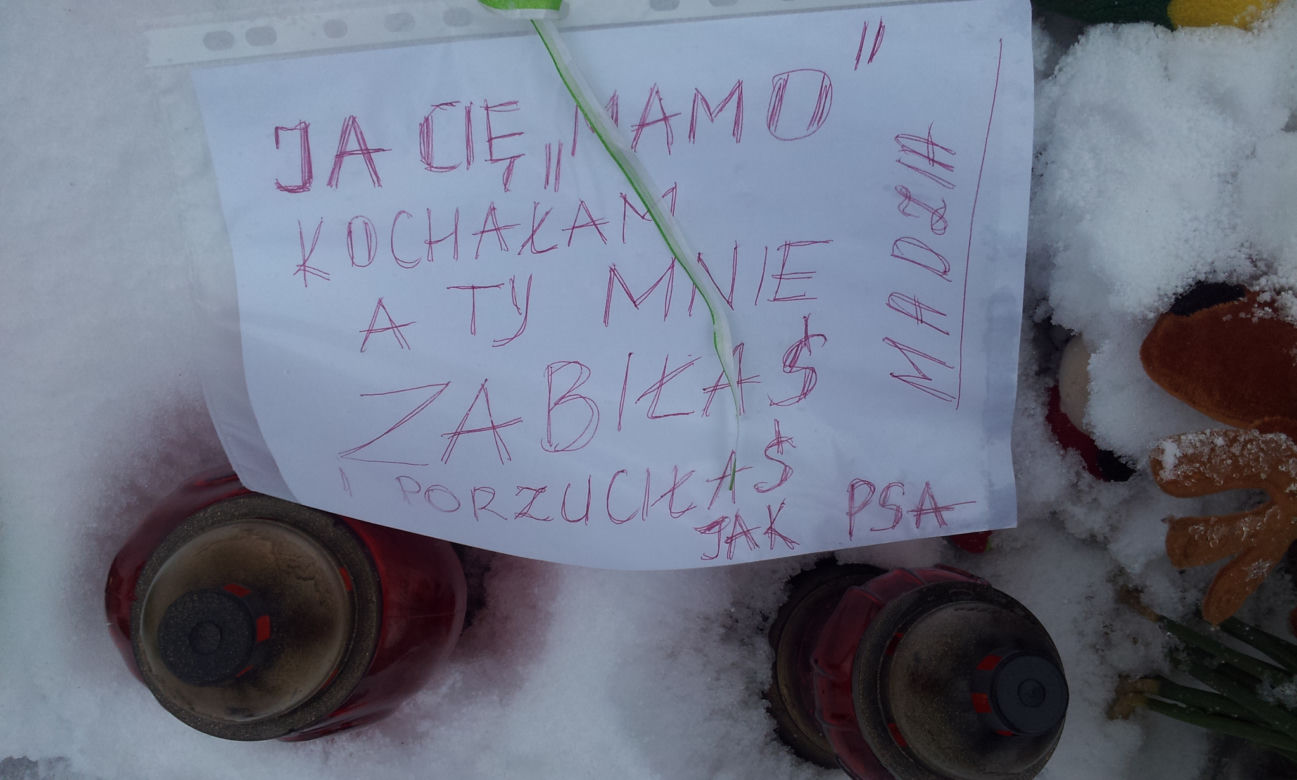 JA CIĘ „MAMO”
KOCHAŁAM
A TY MNIE
ZABIŁAŚ
I PORZUCIŁAŚ
JAK PSA
MADZIA